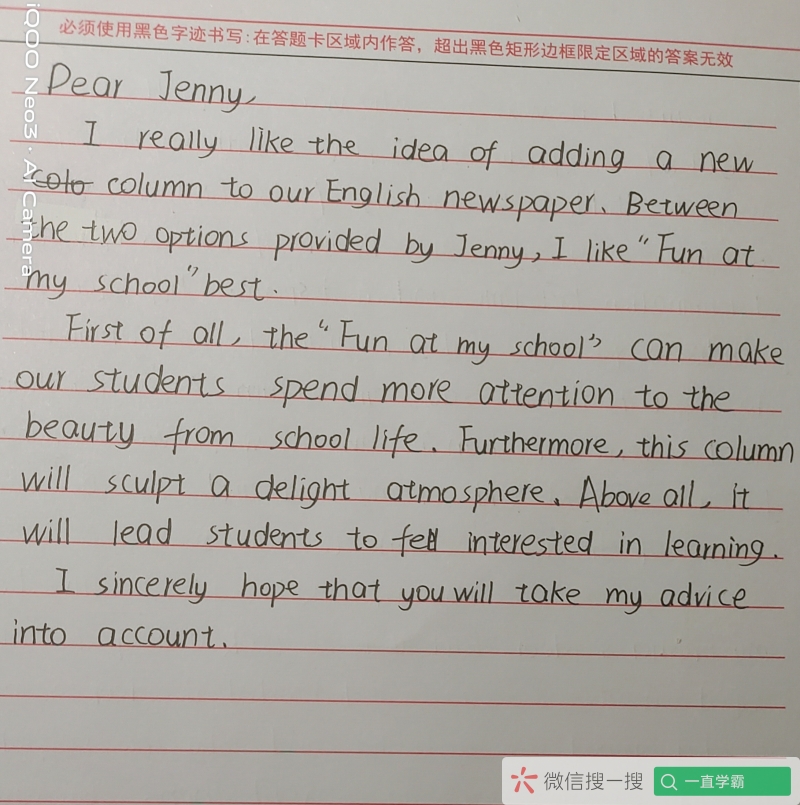 必须使用黑色字迹书写:在答题卡区域内作答，超出黑色矩形边框限定区域的答案无效
Dear Jenny,
I really like the idea of adding a new
colo column to our English newspaper. Between
the two options provided by Jenny, I like "Fun at
my school" best.
First of all, the "Fun at my school" can make
our students spend more attention to the
beauty from school life. Furthermore, this column
will sculpt a delight atmosphere. Above all, it
will lead students to feel interested in learning.
I sincerely hope that you will take my advice
into account.
iQOO Neo3 · AI Camera
微信搜一搜
一直学霸